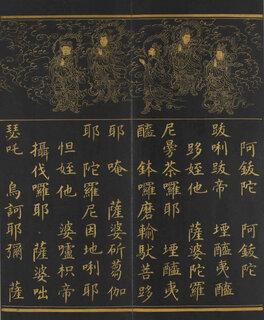 阿鈸陀 阿鈸陀
跋唎跋帝 堙醯夷醯
哆姪他 薩婆陀羅
尼曼荼囉耶 堙醯夷
醯 鉢囉磨輸馱菩哆
耶 唵 薩婆斫蒭伽
耶 陀羅尼因地唎耶
怛姪他 婆嚧枳帝
攝伐囉耶 薩婆咄
瑟吒 烏訶耶彌 薩